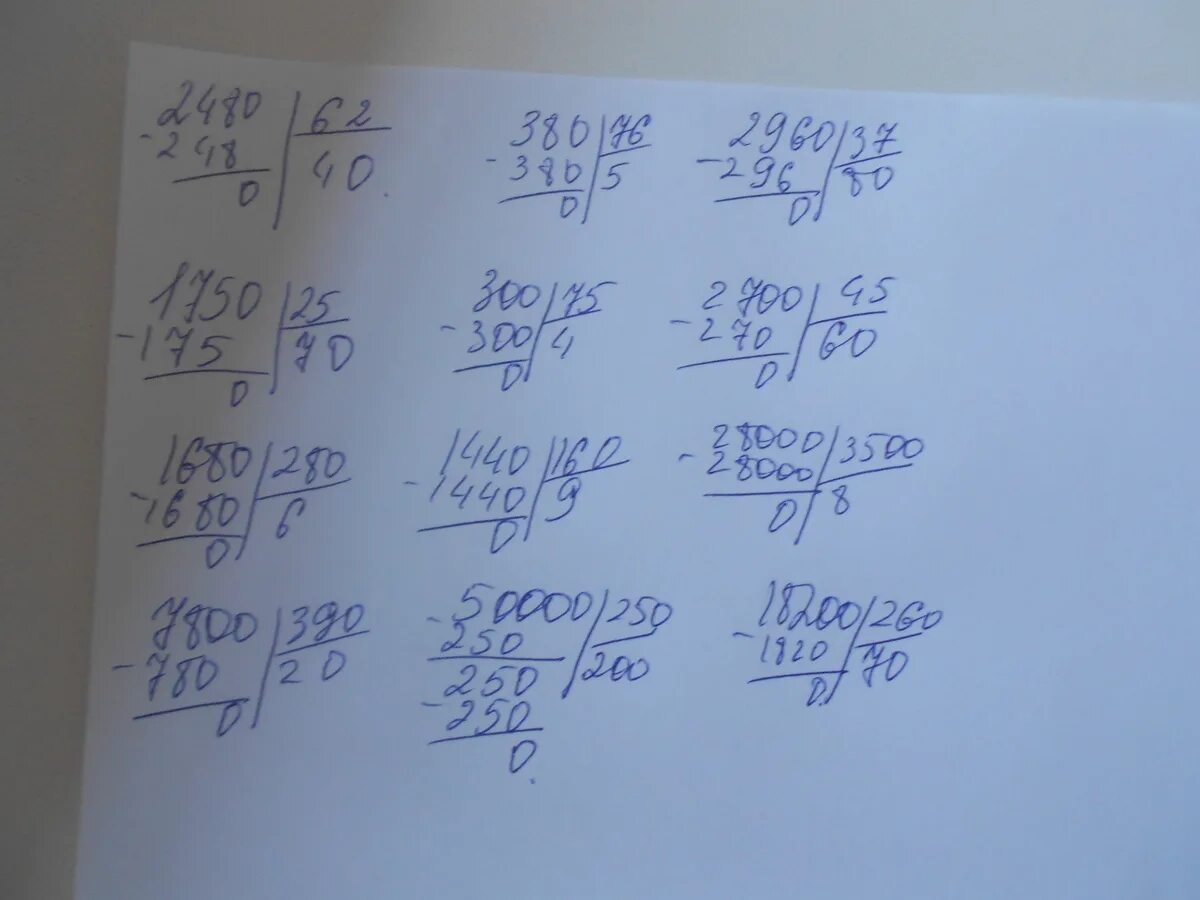 2480 62
-248 40.
0
380 76
-380 5
0
2960 37
-296 80
0
1750 25
-175 70
0
300 75
-300 4
0
2700 45
-270 60
0
1680 280
-1680 6
0
1440 160
-1440 9
0
28000 3500
-28000 8
0
7800 390
-780 20
0
50000 250
-250 200
250
-250
0.
18200 260
-1820 70
0